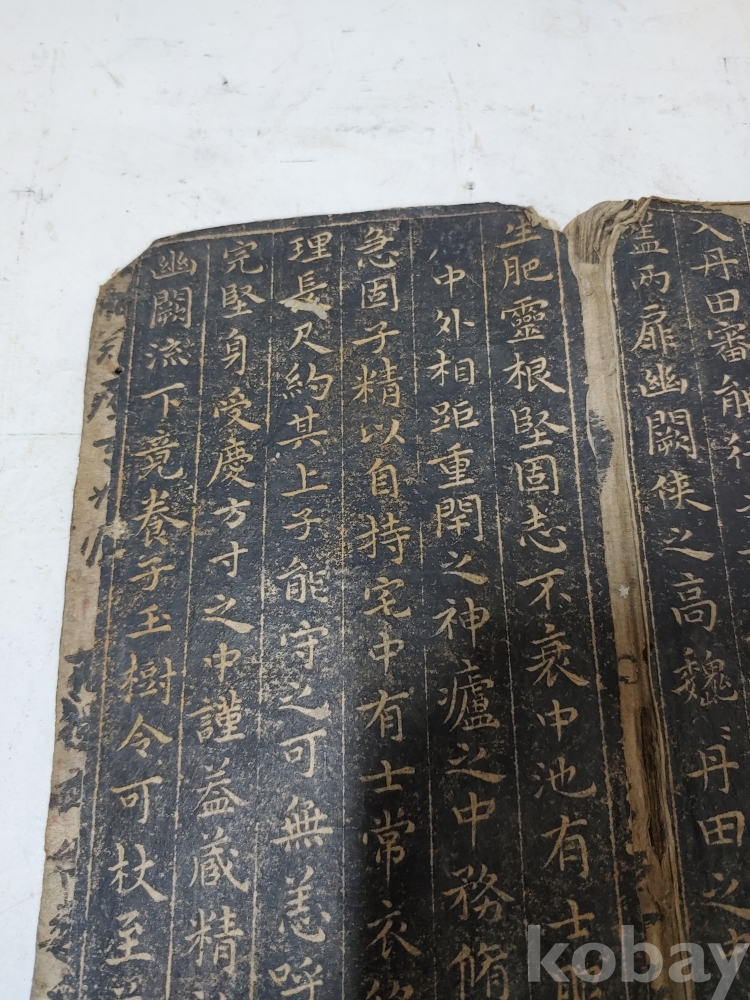 入丹田審能行
蓋兩扉幽闕俠之高魏〻丹田之
生肥靈根堅固志不衰中池有士
中外相距重閇之神廬之中務脩
急固子精以自持宅中有士常衣絳
理長尺約其上子能守之可無恙呼
完堅身受慶方寸之中謹蓋藏精
幽闕流下竟養子玉樹令可杖至
kobay